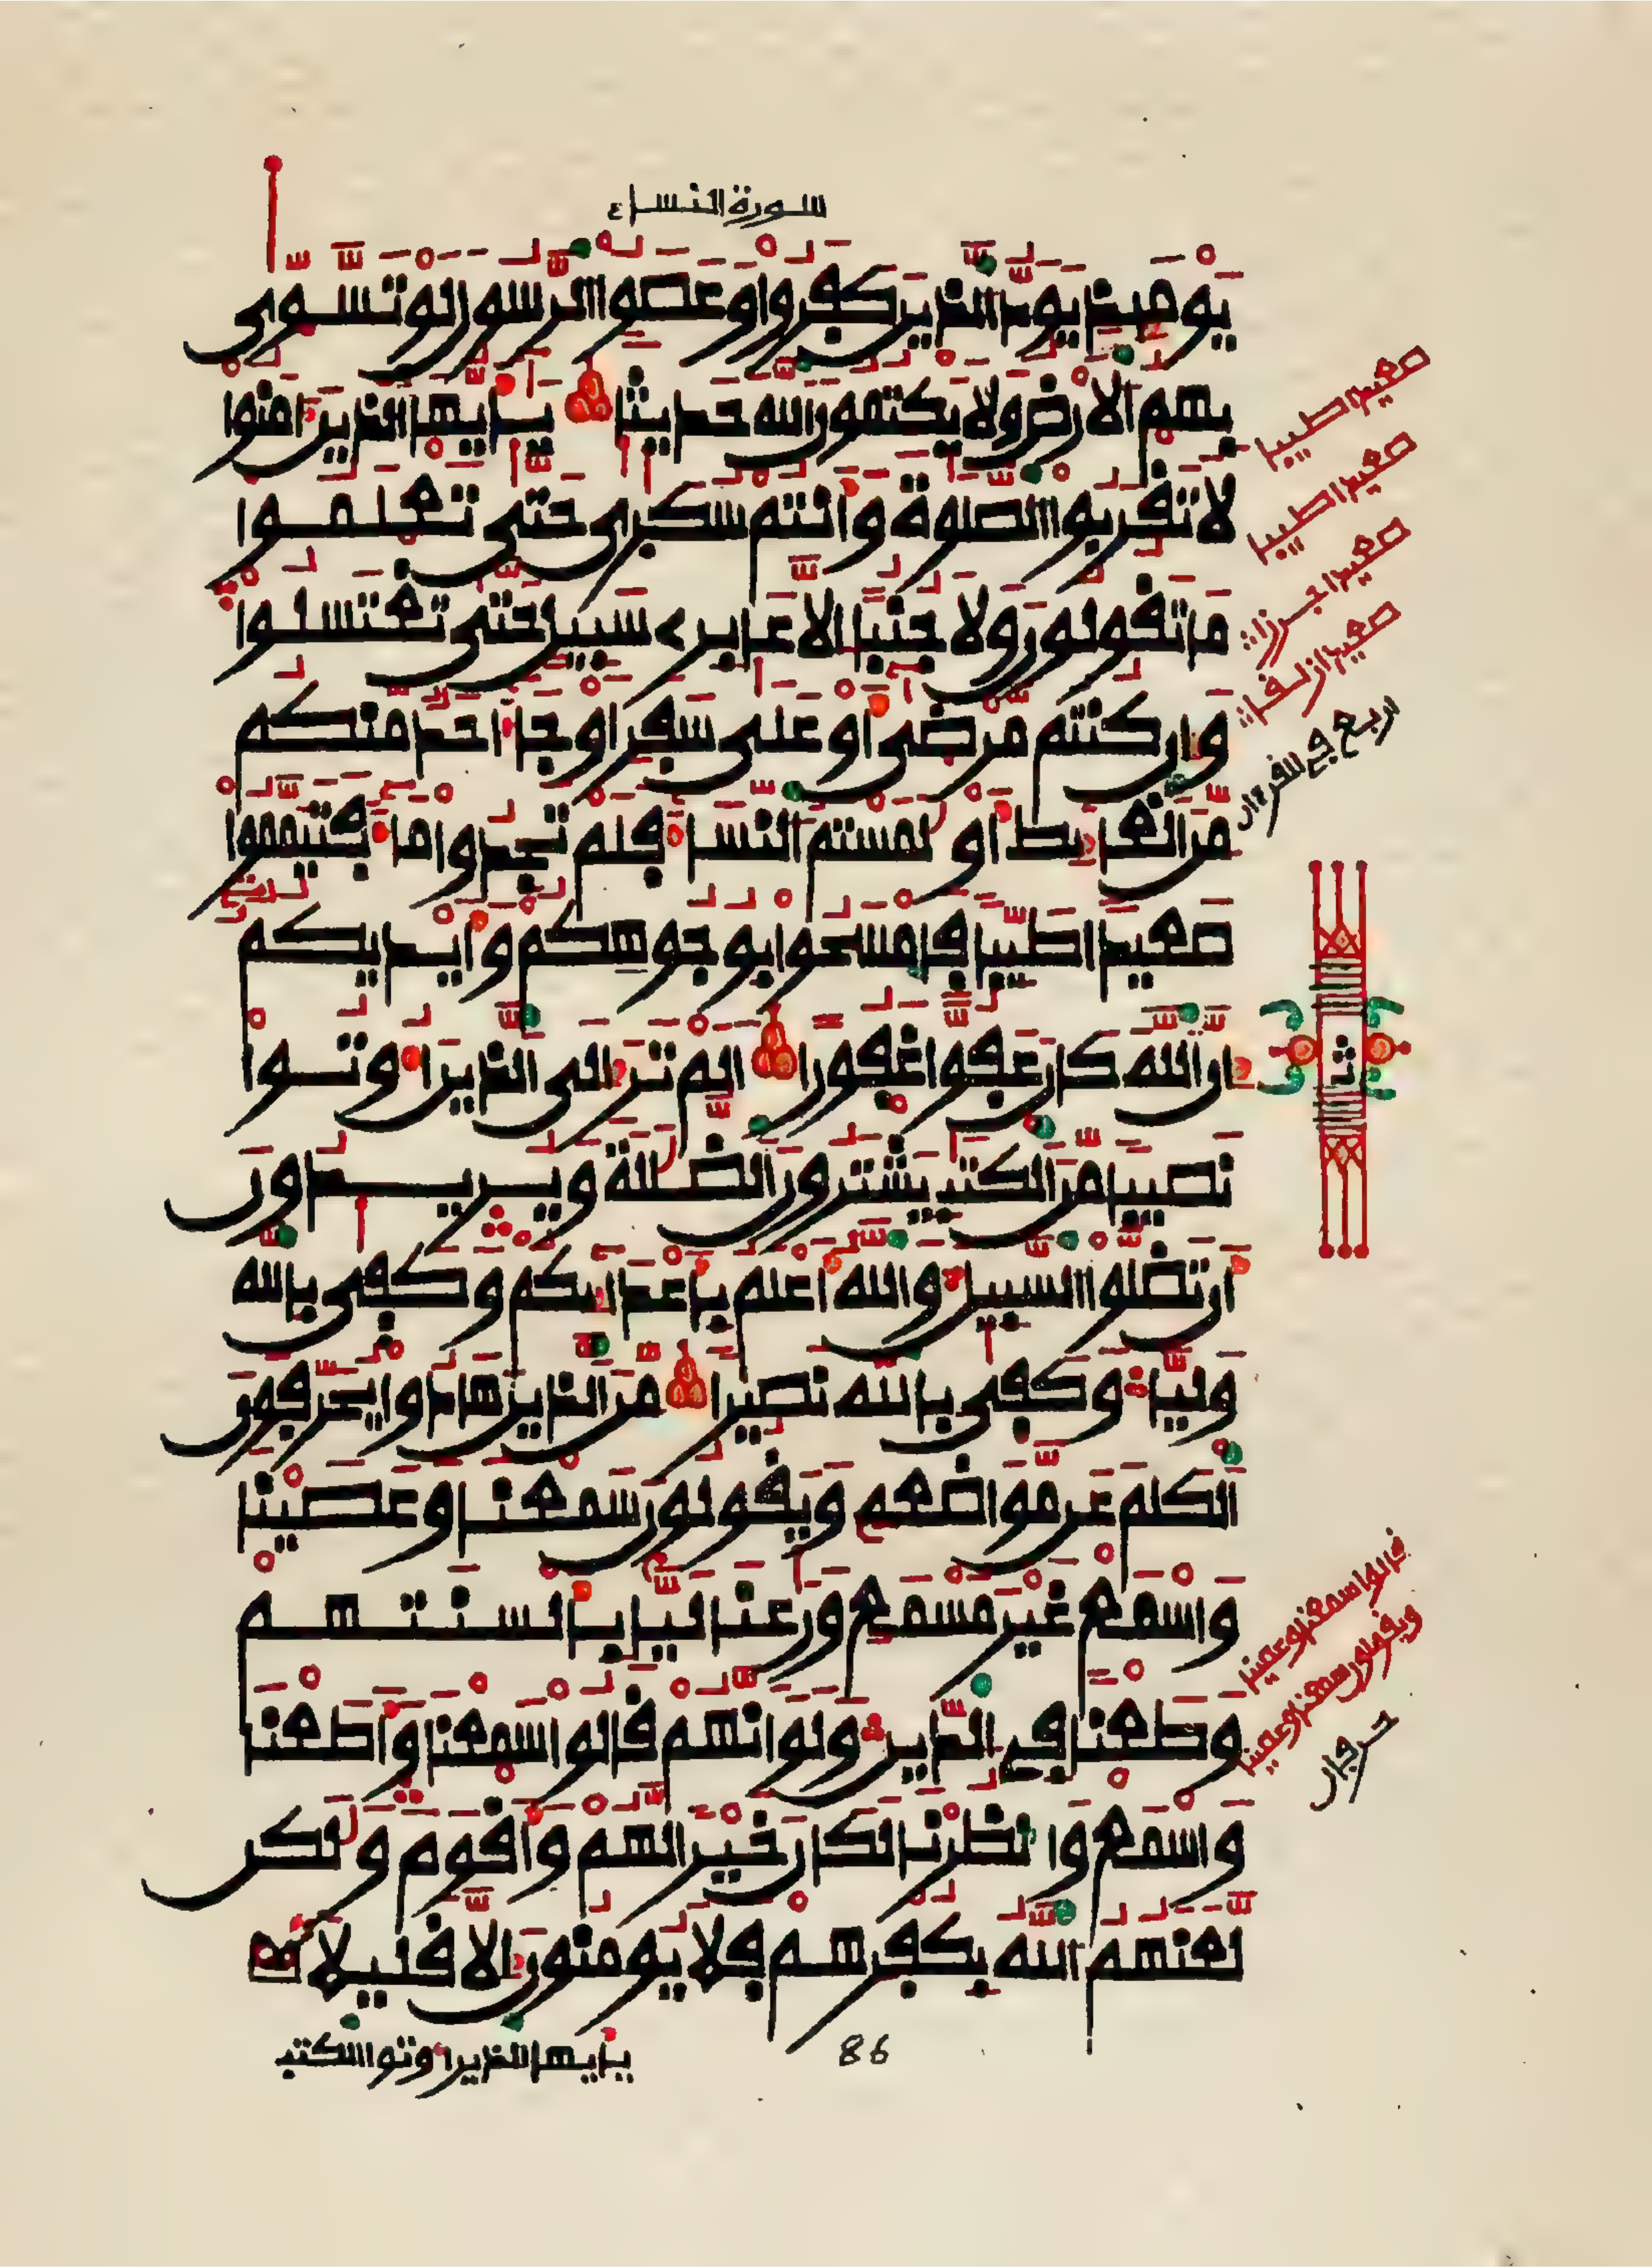 سورة النساء
يَوْمَئِذٍ يَوَدُّ الذِينَ كَفَرُوا وَعَصَوُا الرَّسُولَ لَوْ تَسَّوّٰى
بِهِمُ الَارْضُ وَلَا يَكْتُمُونَ اللهَ حَدِيثًا يَٰأَيُّهَا الذِينَ ءَامَنُوا
لَا تَقْرَبُوا الصَّلَوٰةَ وَأَنتُمْ سُكَٰرَىٰ حَتَّىٰ تَعْلَمُوا
مَا تَقُولُونَ وَلَا جُنُبًا اِلَّا عَابِرِي سَبِيلٍ حَتَّىٰ تَغْتَسِلُوا
وَإِن كُنتُم مَّرْضَىٰ أَوْ عَلَىٰ سَفَرٍ اَوْ جَاءَ احَدٌ مِّنكُم
مِّنَ الْغَائِطِ أَوْ لَٰمَسْتُمُ النِّسَاءَ فَلَمْ تَجِدُوا مَاءً فَتَيَمَّمُوا
صَعِيدًا طَيِّبًا فَامْسَحُوا بِوُجُوهِكُمْ وَأَيْدِيكُمُ
إِنَّ اللهَ كَانَ عَفُوًّا غَفُورًا اَلَمْ تَرَ إِلَى الذِينَ أُوتُوا
نَصِيبًا مِّنَ الْكِتَٰبِ يَشْتَرُونَ الضَّلَٰلَةَ وَيُرِيدُونَ
أَن تَضِلُّوا السَّبِيلَ وَاللهُ أَعْلَمُ بِأَعْدَائِكُمْ وَكَفَىٰ بِاللهِ
وَلِيًّا وَكَفَىٰ بِاللهِ نَصِيرًا مِّنَ الذِينَ هَادُوا يُحَرِّفُونَ
الْكَلِمَ عَن مَّوَاضِعِهِ وَيَقُولُونَ سَمِعْنَا وَعَصَيْنَا
وَاسْمَعْ غَيْرَ مُسْمَعٍ وَرَٰعِنَا لَيًّا بِأَلْسِنَتِهِمْ
وَطَعْنًا فِي الدِّينِ وَلَوَ انَّهُمْ قَالُوا سَمِعْنَا وَأَطَعْنَا
وَاسْمَعْ وَانظُرْنَا لَكَانَ خَيْرًا لَّهُمْ وَأَقْوَمَ وَلَٰكِن
لَّعَنَهُمُ اللهُ بِكُفْرِهِمْ فَلَا يُومِنُونَ إِلَّا قَلِيلًا
صعيدا طيبا
صعيدا طيبا
صعيدا جرزا
صعيدا زلقا
اربع في القرءان
ثمن
قالوا سمعنا وعصينا
ويقولون سمعنا وعصينا
حرفان
86
يأيها الذين أوتوا الكتب